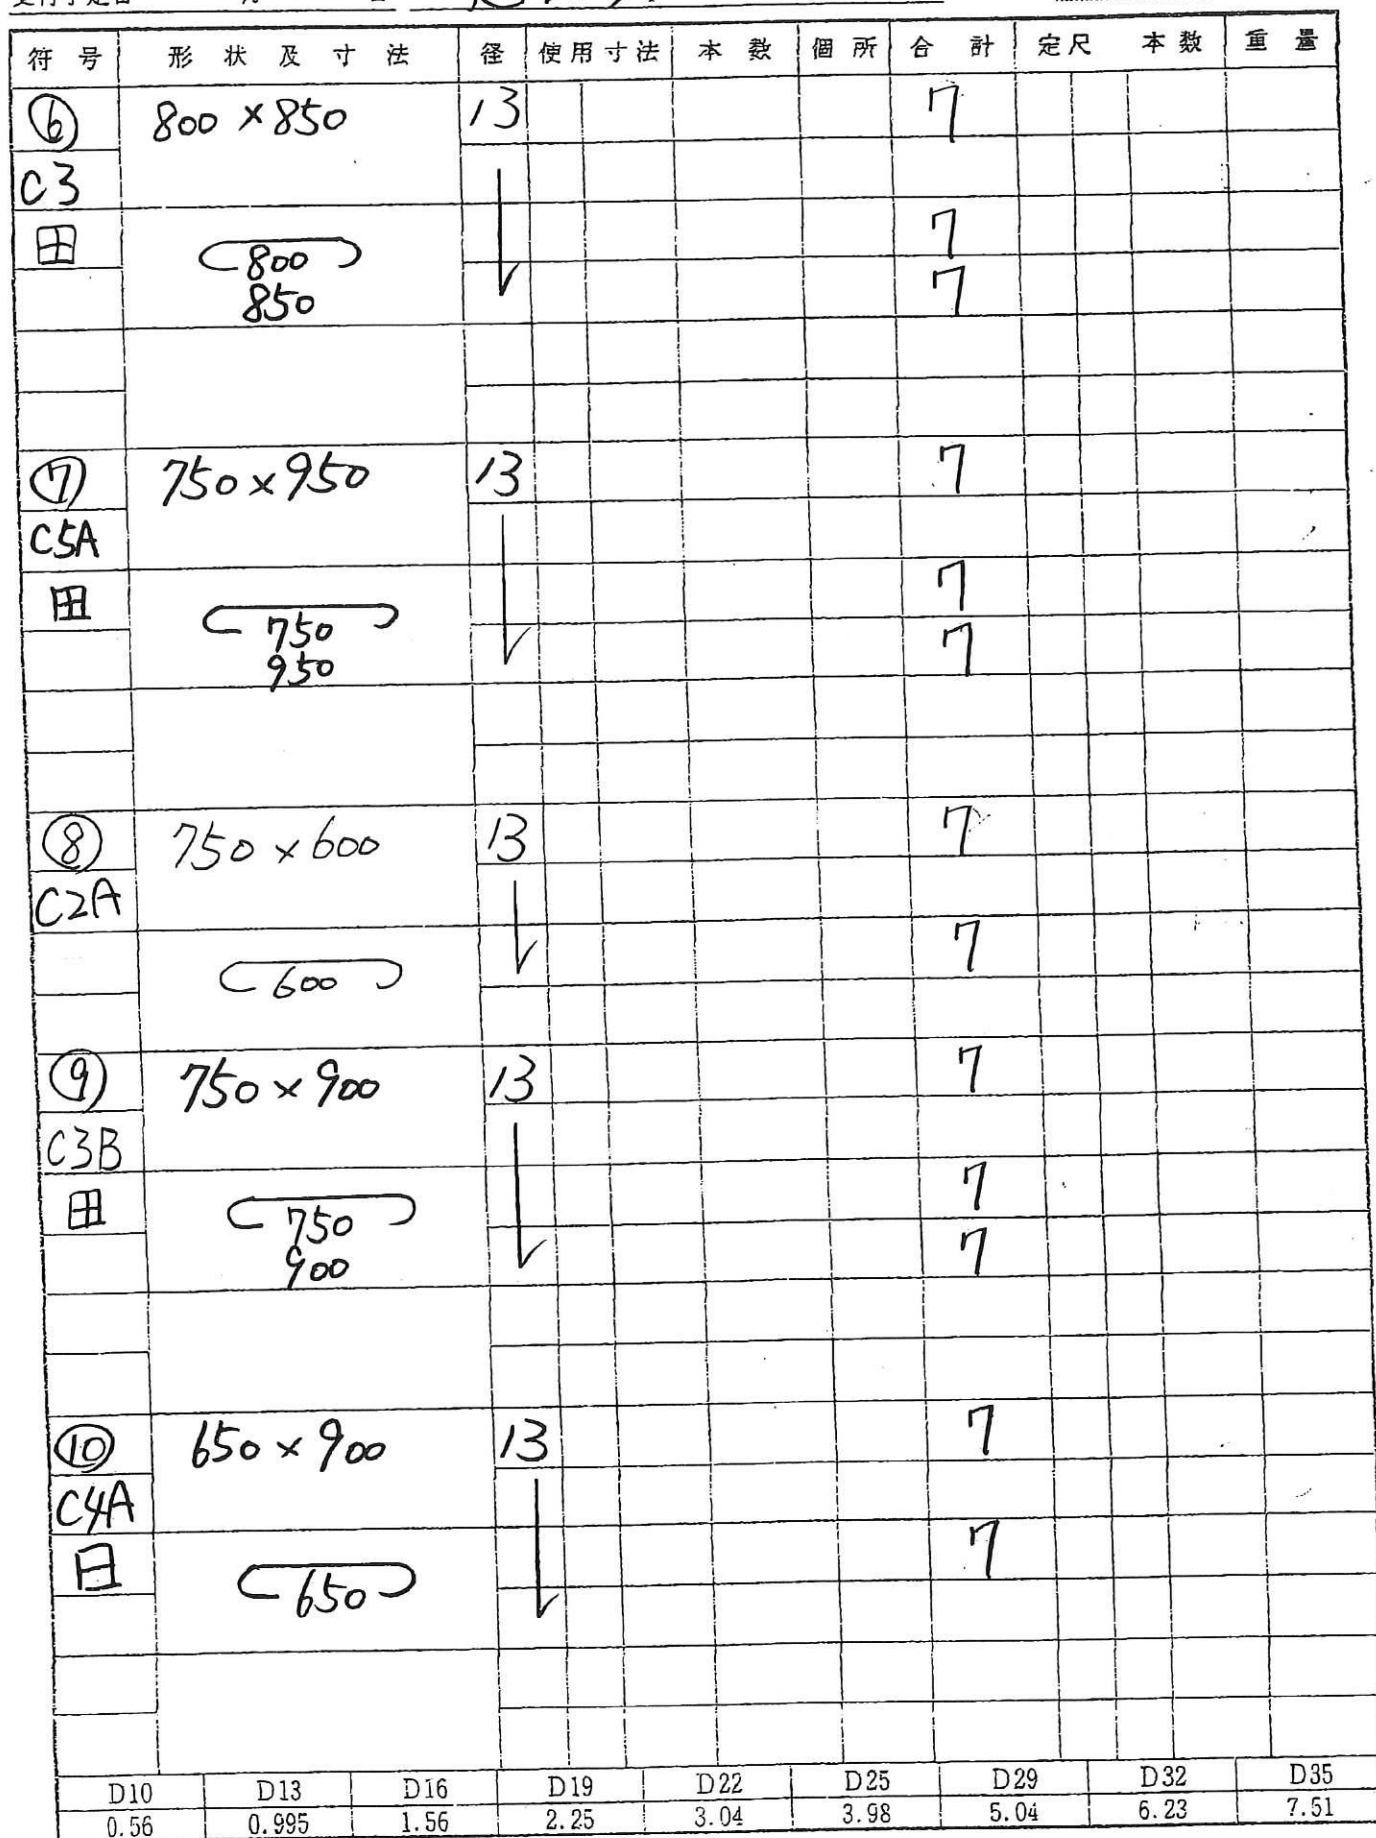 符号 形状及寸法 径 使用寸法 本数 個所 合計 定尺 本数 重量
⑥ 800×850 13 7
C3
田 800 7
850 7
⑦ 750×950 13 7
C5A
田 750 7
950 7
⑧ 750×600 13 7
C2A
600 7
⑨ 750×900 13 7
C3B
田 750 7
900 7
⑩ 650×900 13 7
C4A
日 650 7
D10 D13 D16 D19 D22 D25 D29 D32 D35
0.56 0.995 1.56 2.25 3.04 3.98 5.04 6.23 7.51